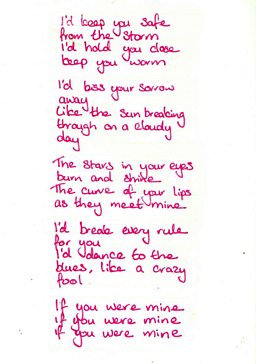 I'd keep you safe
from the storm
I'd hold you close
keep you warm
I'd kiss your sorrow
away
Like the sun breaking
through on a cloudy
day
The stars in your eyes
burn and shine
The curve of your lips
as they meet mine
I'd break every rule
for you
I'd dance to the
blues, like a crazy
fool
If you were mine
if you were mine
if you were mine